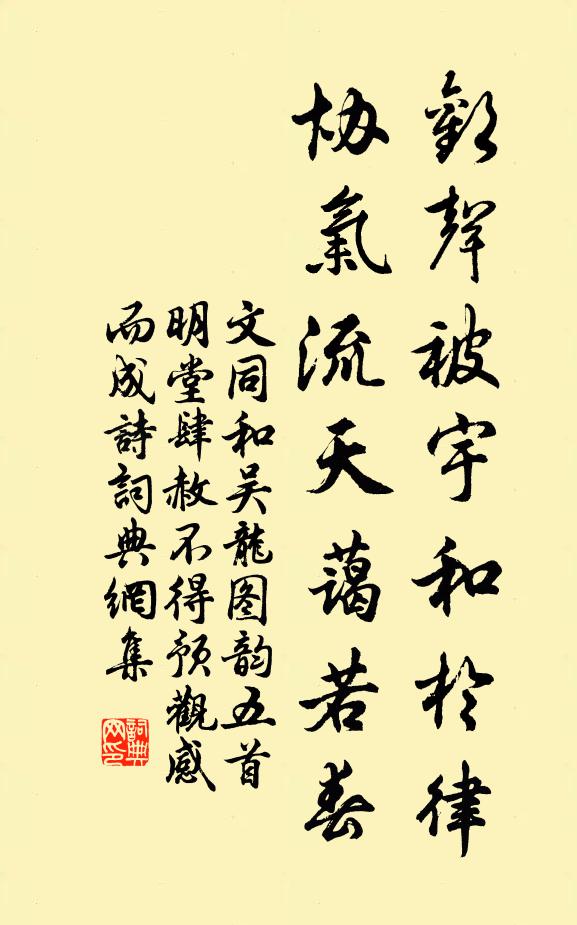 歡聲被宇和於律
協氣流天藹若春
文同和吴龍图韵五首
明堂肆赦不得預觀感
而成詩詞典網集
詞典
网印